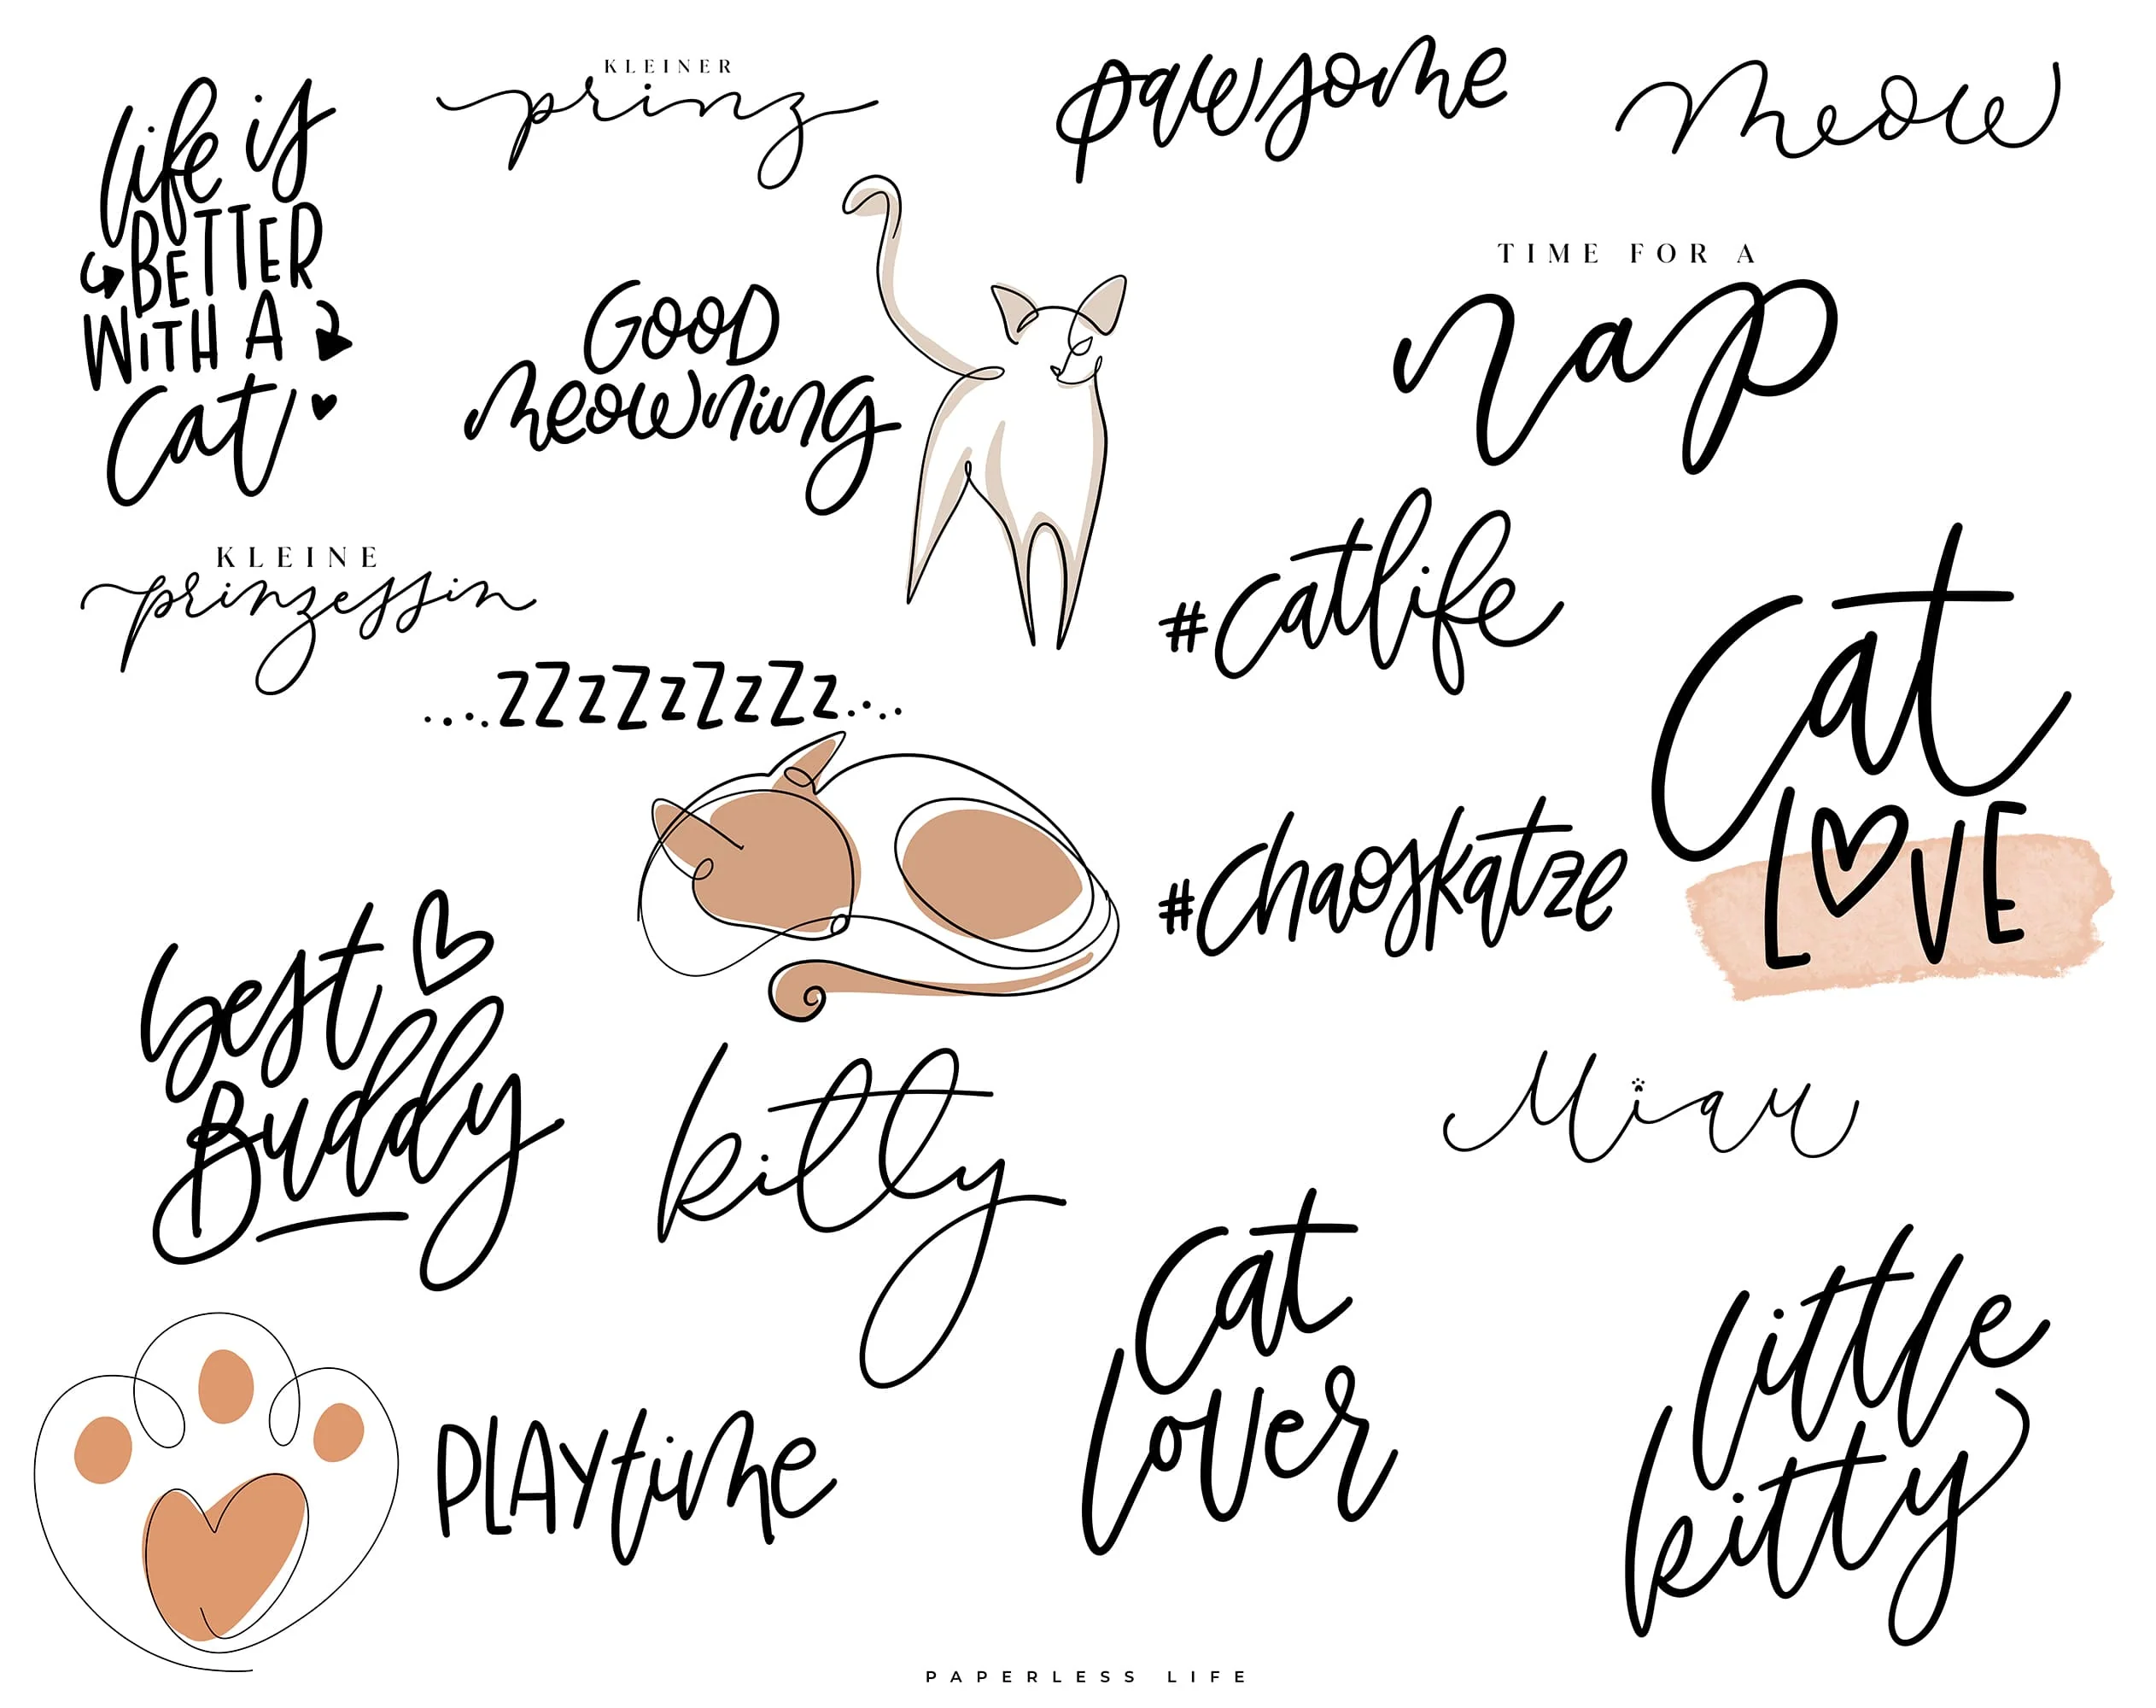 life is
BETTER
WITH A
cat
KLEINER
prinz
pawsome
meow
GOOD
meowning
TIME FOR A
nap
KLEINE
prinzessin
#catlife
....zZzZzZzZz....
cat
LOVE
#chaoskatze
best
Buddy
kitty
Miau
cat
lover
little
kitty
PLAYtime
PAPERLESS LIFE